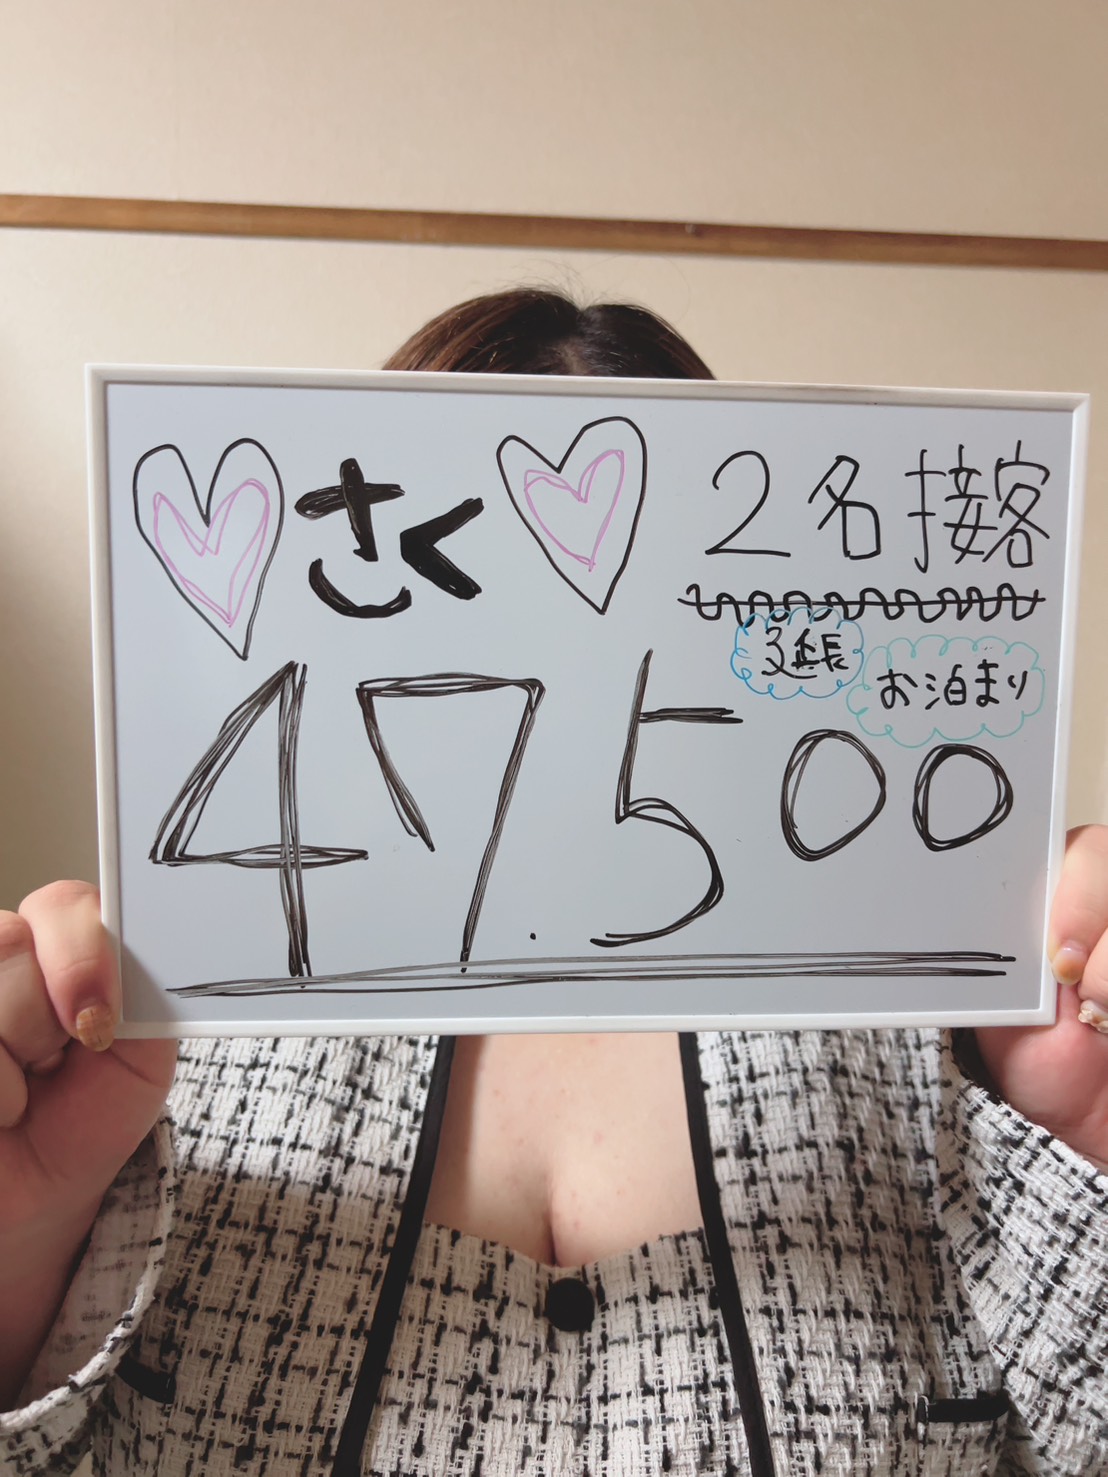 さく
2名接客
延長
お泊まり
47.500